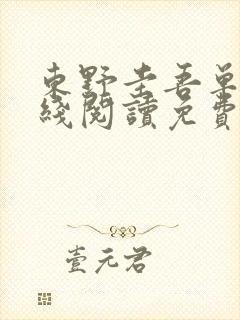 東野圭吾單
綫閱讀免費
壹元君